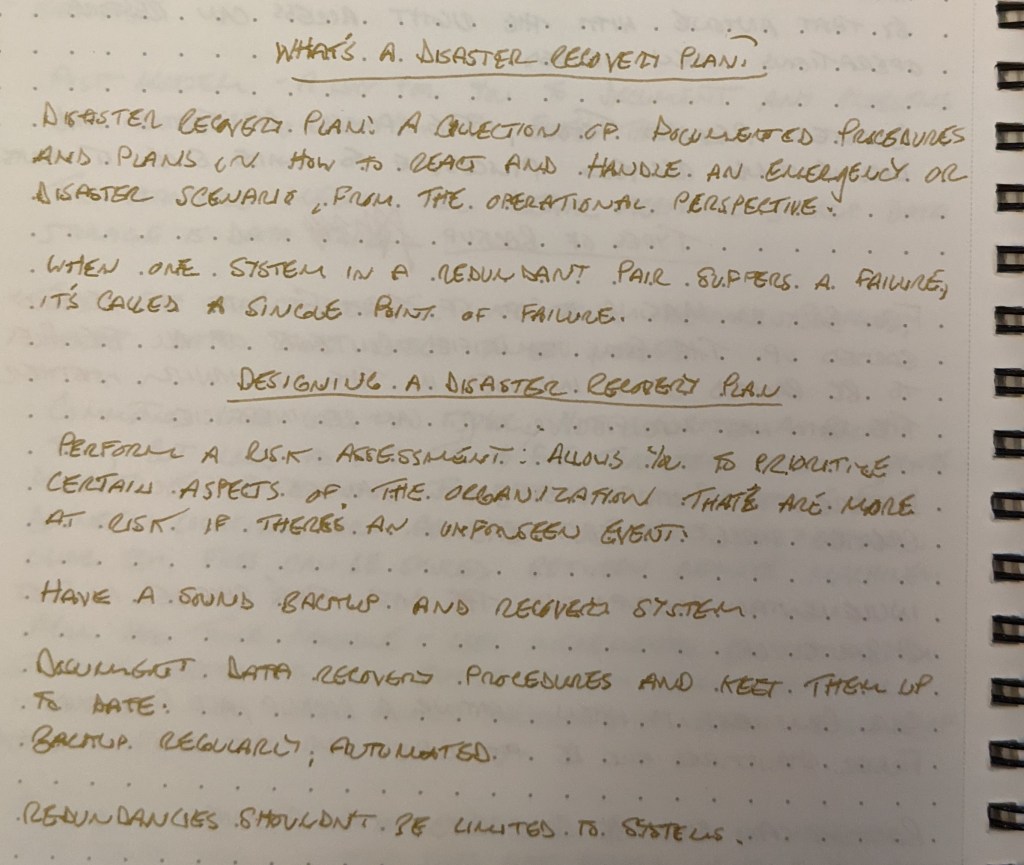 WHAT'S A DISASTER RECOVERY PLAN?
DISASTER RECOVERY PLAN: A COLLECTION OF DOCUMENTED PROCEDURES
AND PLANS ON HOW TO REACT AND HANDLE AN EMERGENCY OR
DISASTER SCENARIO, FROM THE OPERATIONAL PERSPECTIVE.
WHEN ONE SYSTEM IN A REDUNDANT PAIR SUFFERS A FAILURE,
IT'S CALLED A SINGLE POINT OF FAILURE.
DESIGNING A DISASTER RECOVERY PLAN
PERFORM A RISK ASSESSMENT: ALLOWS YOU TO PRIORITIZE
CERTAIN ASPECTS OF THE ORGANIZATION THAT'S ARE MORE
AT RISK IF THERE'S AN UNFORSEEN EVENT.
HAVE A SOUND BACKUP AND RECOVERY SYSTEM.
DOCUMENT DATA RECOVERY PROCEDURES AND KEEP THEM UP
TO DATE.
BACKUP REGULARLY, AUTOMATED.
REDUNDANCIES SHOULDN'T BE LIMITED TO SYSTEMS.